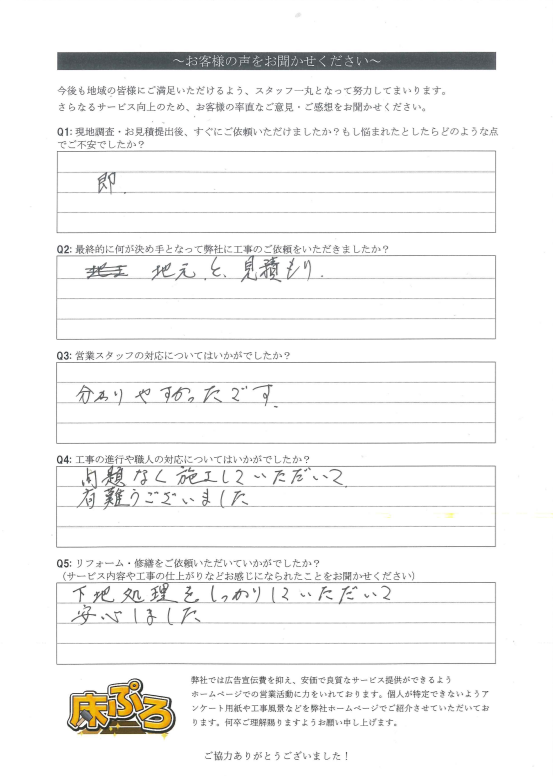 ～お客様の声をお聞かせください～
今後も地域の皆様にご満足いただけるよう、スタッフ一丸となって努力してまいります。
さらなるサービス向上のため、お客様の率直なご意見・ご感想をお聞かせください。
Q1: 現地調査・お見積提出後、すぐにご依頼いただけましたか？もし悩まれたとしたらどのような点
でご不安でしたか？
即.
Q2: 最終的に何が決め手となって弊社に工事のご依頼をいただきましたか？
地元と、見積もり.
Q3: 営業スタッフの対応についてはいかがでしたか？
分かりやすかったです.
Q4: 工事の進行や職人の対応についてはいかがでしたか？
問題なく施工していただいて
有難うございました
Q5: リフォーム・修繕をご依頼いただいていかがでしたか？
（サービス内容や工事の仕上がりなどお感じになられたことをお聞かせください）
下地処理をしっかりしていただいて
安心しました
弊社では広告宣伝費を抑え、安価で良質なサービス提供ができるよう
ホームページでの営業活動に力をいれております。個人が特定できないようア
ンケート用紙や工事風景などを弊社ホームページでご紹介させていただいてお
ります。何卒ご理解賜りますようお願い申し上げます。
床ぷろ
ご協力ありがとうございました！